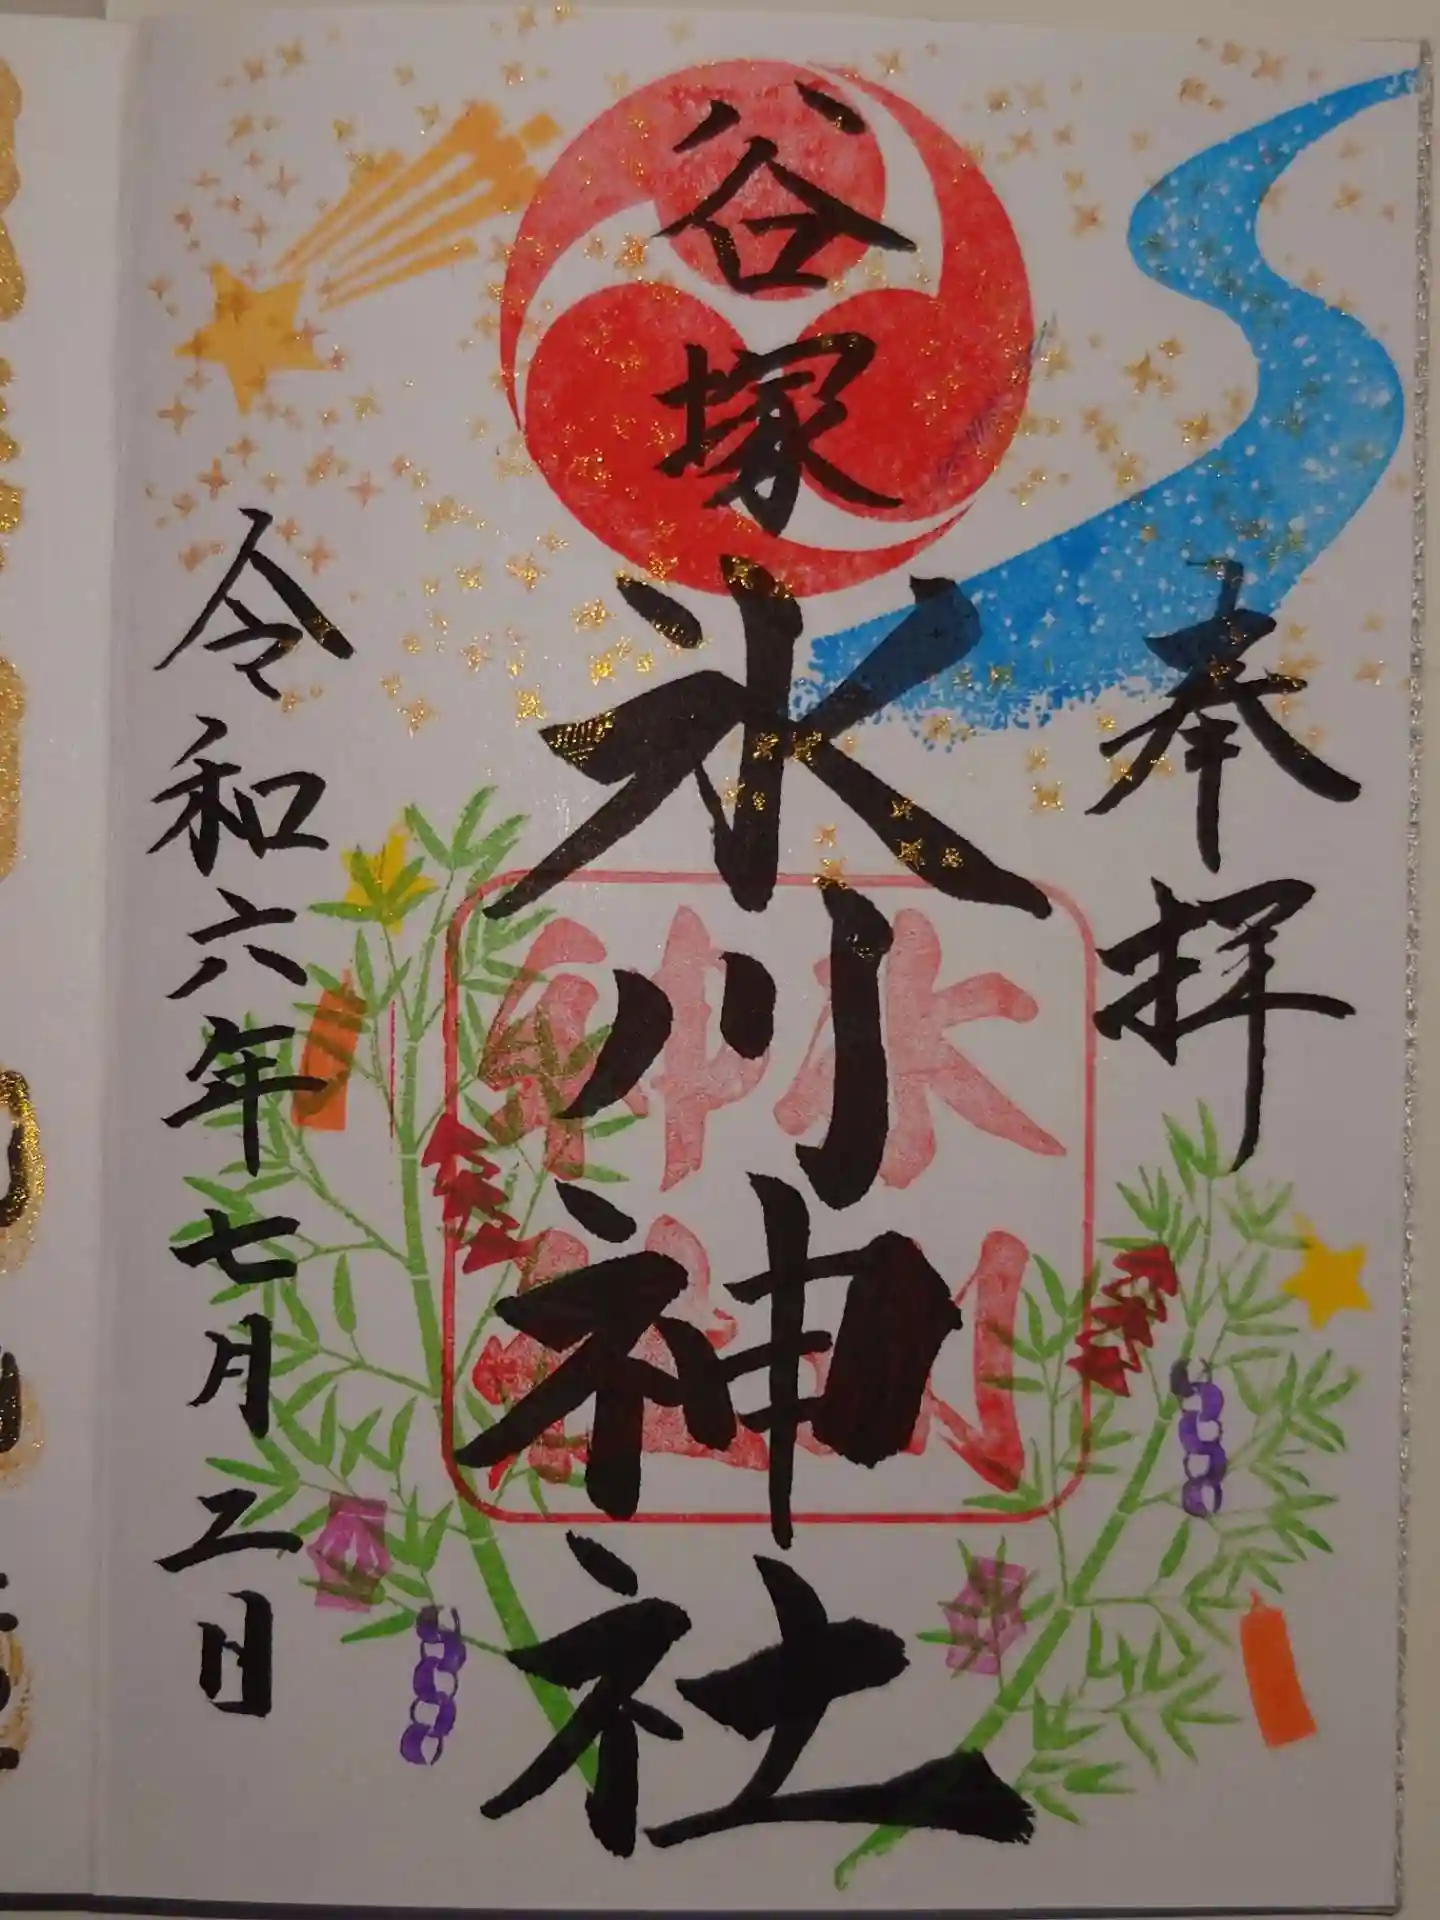 奉拝
谷塚氷川神社
氷川
神社
令和六年七月二日